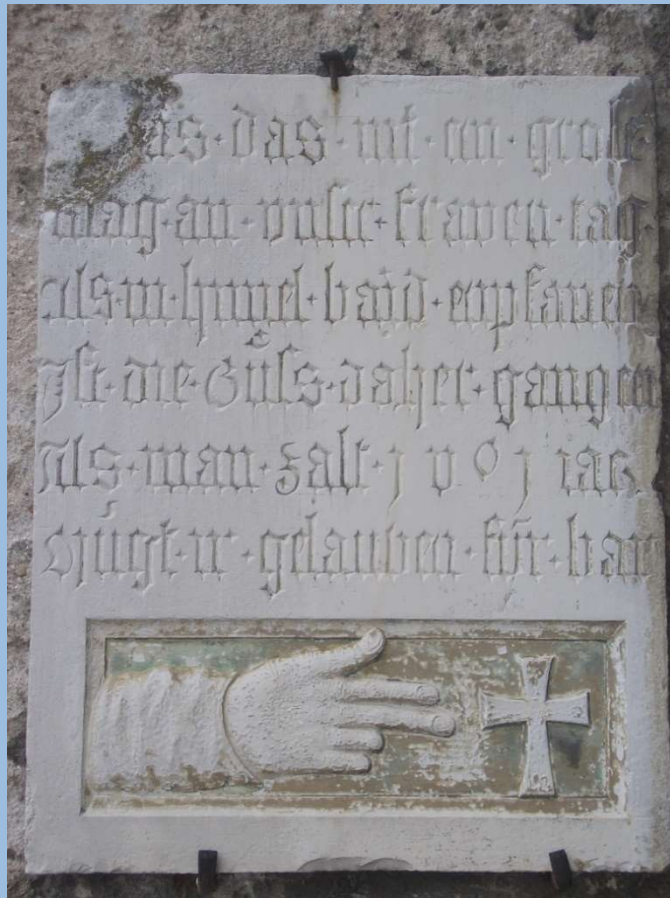 as · das · nit · ain · grose
mag · an · vnser · fraven · tag
als · in · hymel · bard · enpfanen
Ist · die · Güss · daher · gangen
Als · man · zalt · j v 0 j iar
Mügt · ir · gelauben · für · bar